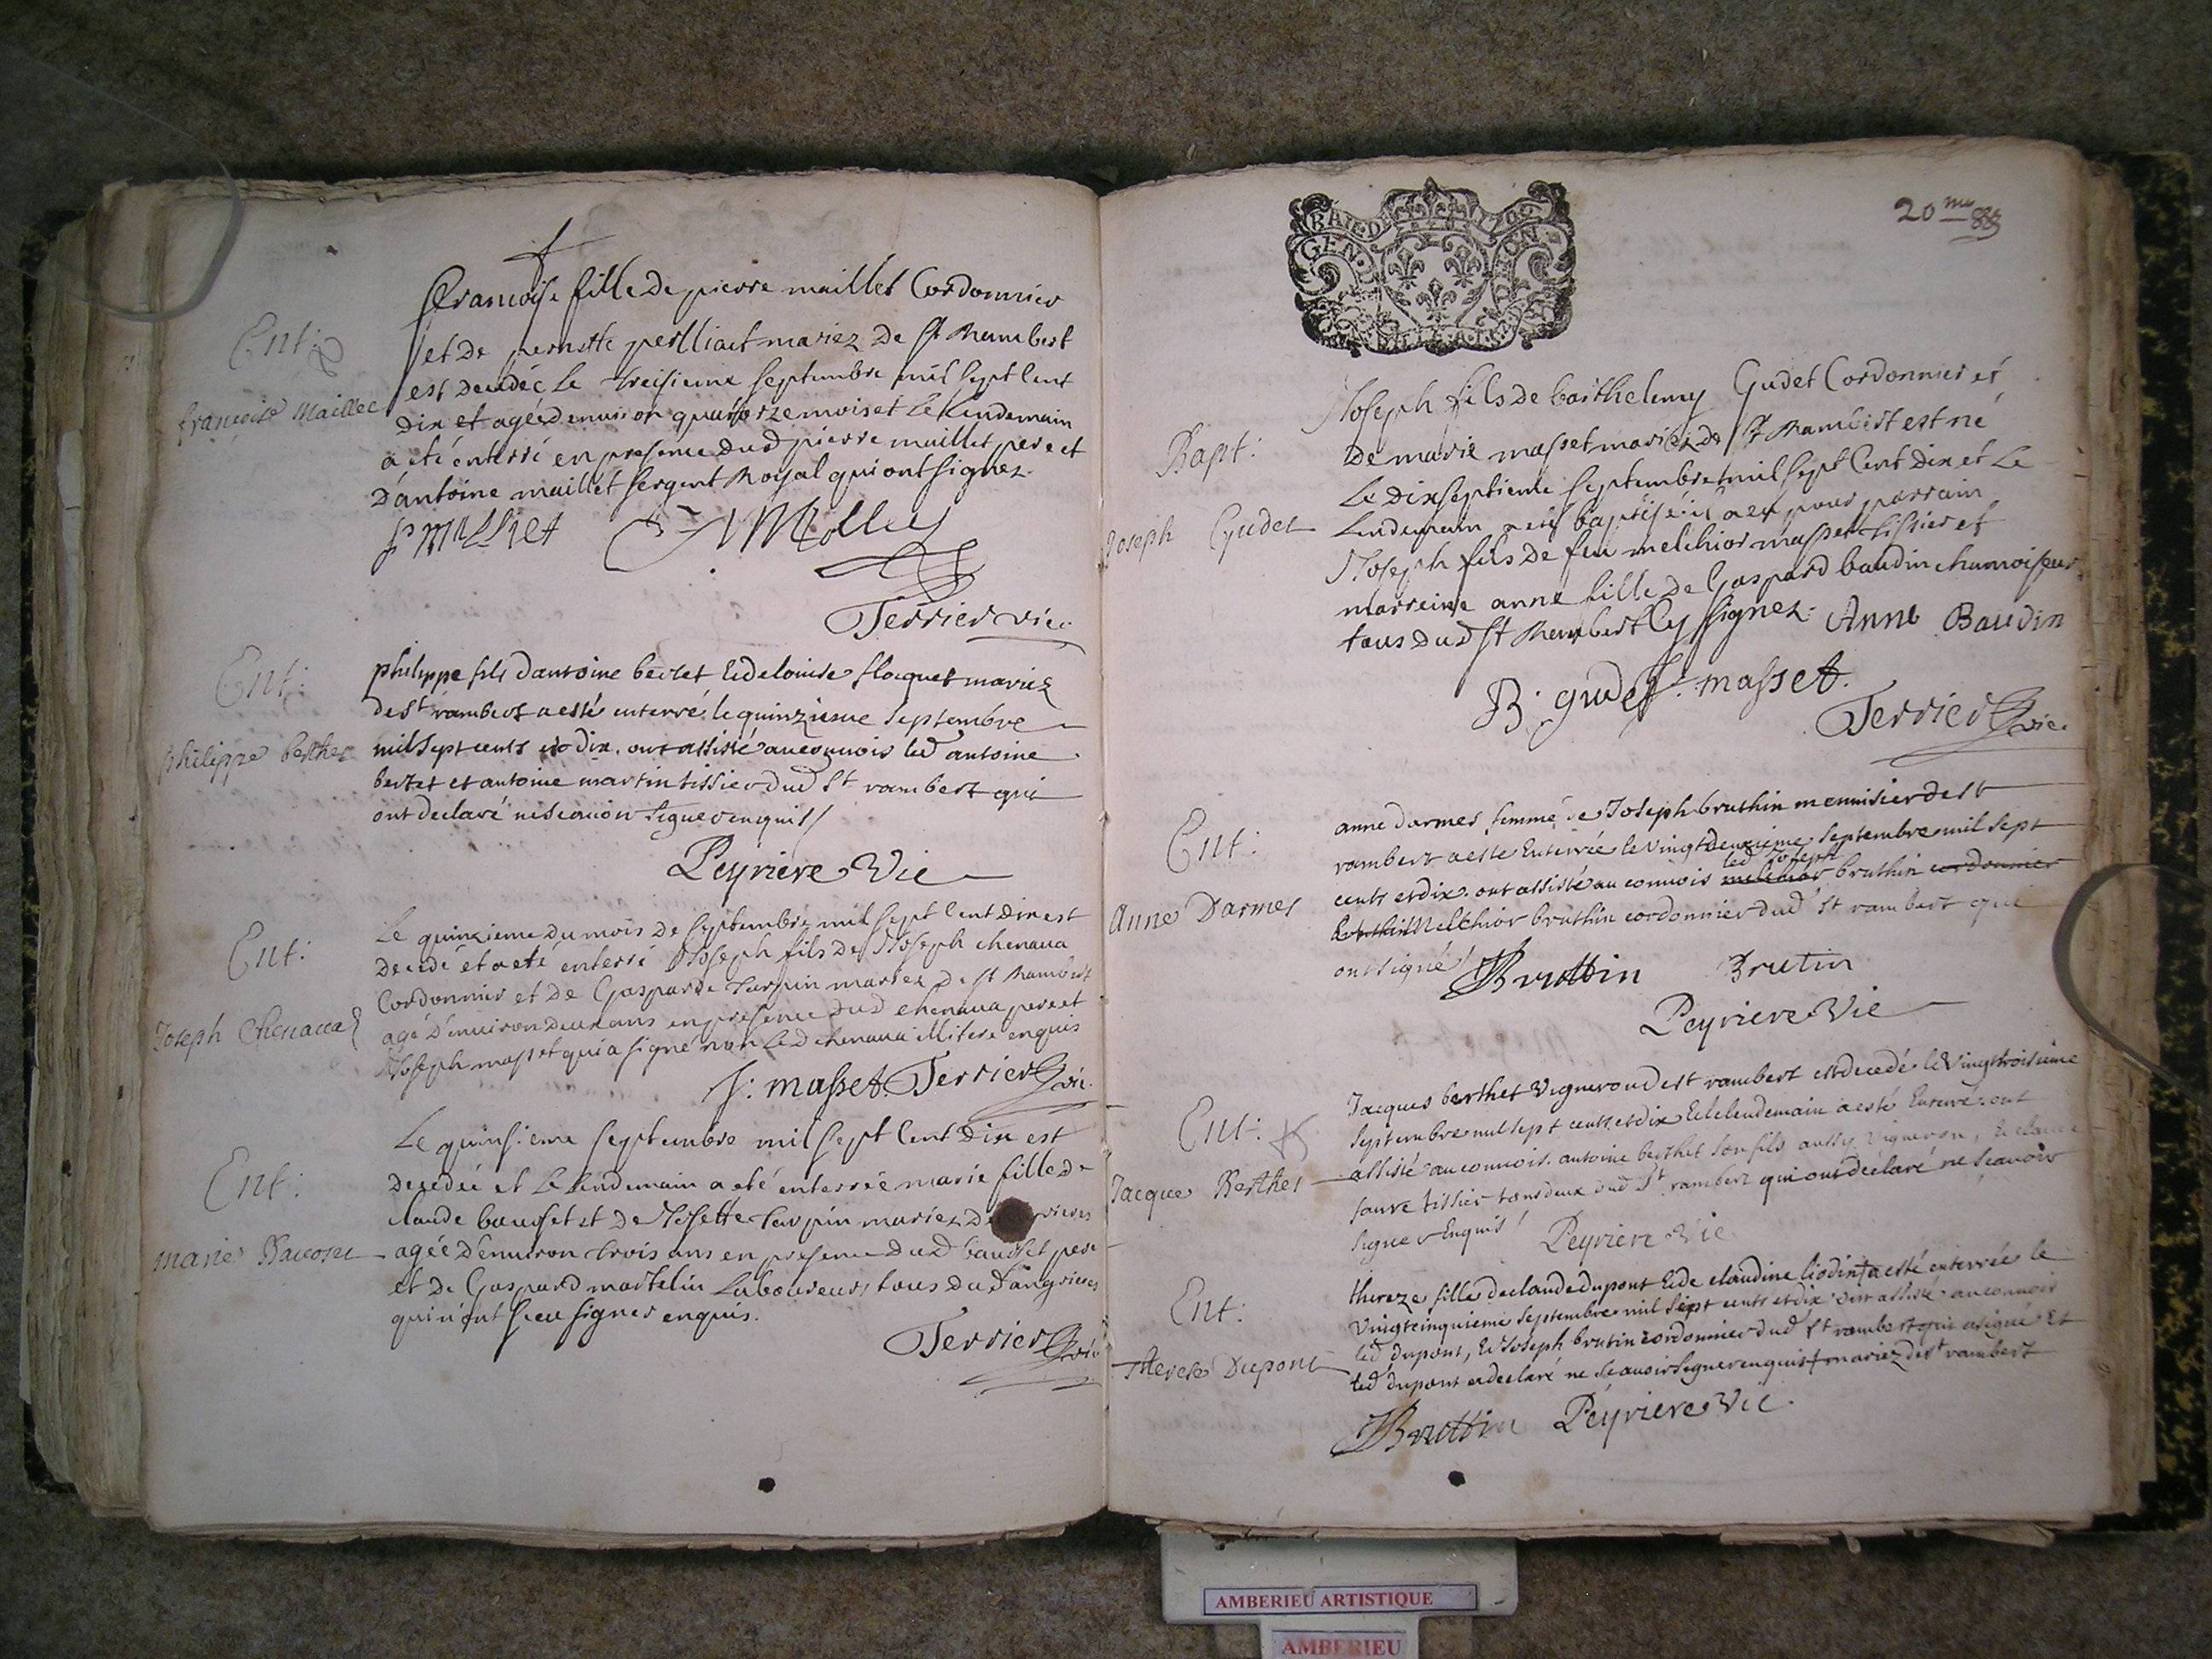 Ent:
francoise Maillet
francoise fille de pierre maillet Cordonnier
et de pernette perlliact mariez de St Rambert
est decedée le treisieme septembre mil sept Cent
Dix et agée denuiron quatorze mois et le lendemain
a eté enterré en presence dud pierre maillet pere et
D'antoine maillet sergent Royal qui ont signez.
Terrier vic.
Ent:
philippe berthet
philippe fils d'antoine bertet et de louise flocquet mariez
de St rambert a esté enterré le quinziesme septembre
mil sept cents et dix. ont assisté au conuois led antoine
bertet et antoine martin tissier dud St rambert qui
ont declaré ne scauoir signer enquis/
Peyriere Vic
Ent:
Joseph Chenaua
Le quinzieme du mois de septembre mil sept Cent dix est
decedé et a eté enterré Joseph fils de Joseph chenaua
Cordonnier et de Gasparde turpin mariez de St Rambert
agé D'enuiron deux ans en presence dud chenaua pere et
Joseph masset qui a signé non led chenaua illitere enquis
J: masset. Terrier vic.
Ent:
marie
Le quinsieme septembre mil sept Cent Dix est
decedée et le lendemain a eté enterrée marie fille de
claude et de Josette turpin mariez
agée D'enuiron trois ans en presence dud pere
et de Gaspard martelin Laboureurs tous du d'angrieres
qui n'ont sceu signer enquis.
Terrier vic
20me 88
GEN. 1709
Bapt:
Joseph Gudet
Joseph fils de barthelemy Gudet Cordonnier et
de marie masset mariez de St Rambert est né
Le dixseptieme septembre mil sept Cent Dix et Le
Lendemain a eté baptisé il a eu pour parrain
Joseph fils de feu melchior masset tissier et
marreine anne fille de Gaspard baudin chamoiseur
tous dud St Rambert Cy signez. Anne Baudin
B: gudet J: masset.
Terrier vic.
Ent:
Anne Darmes
anne darmes femme de Joseph bruthin mennisier de St
rambert a este Enterrée le vingt deuxieme septembre mil sept
cents et dix. ont assisté au conuois melchior led Joseph bruthin cordonnier
bruthin Melchior bruthin cordonnier dud St rambert qui
ont signé/
JBruttin Brutin
Peyriere Vic
Ent:
Jacques Berthet
Jacques berthet Vigneron de St rambert est decedé le Vingt troisieme
septembre mil sept cents et dix Et le lendemain a esté Enterré. ont
assisté au conuois. antoine berthet son fils aussy vigneron, et claude
faure tissier tous deux dud St rambert qui ont déclaré ne scauoir
signer Enquis/ Peyriere Vic
Ent:
Therese Dupont
thereze fille de claude dupont Et de claudine liodin + a esté enterrée le
Vingt cinquieme septembre mil sept cents et dix ont assisté au conuois
led dupont, Et Joseph brutin cordonnier dud St rambert qui a signé Et
led dupont a declaré ne scauoir signer enquis + mariez de St rambert
JBruttin Peyriere Vic.
AMBERIEU ARTISTIQUE
AMBERIEU